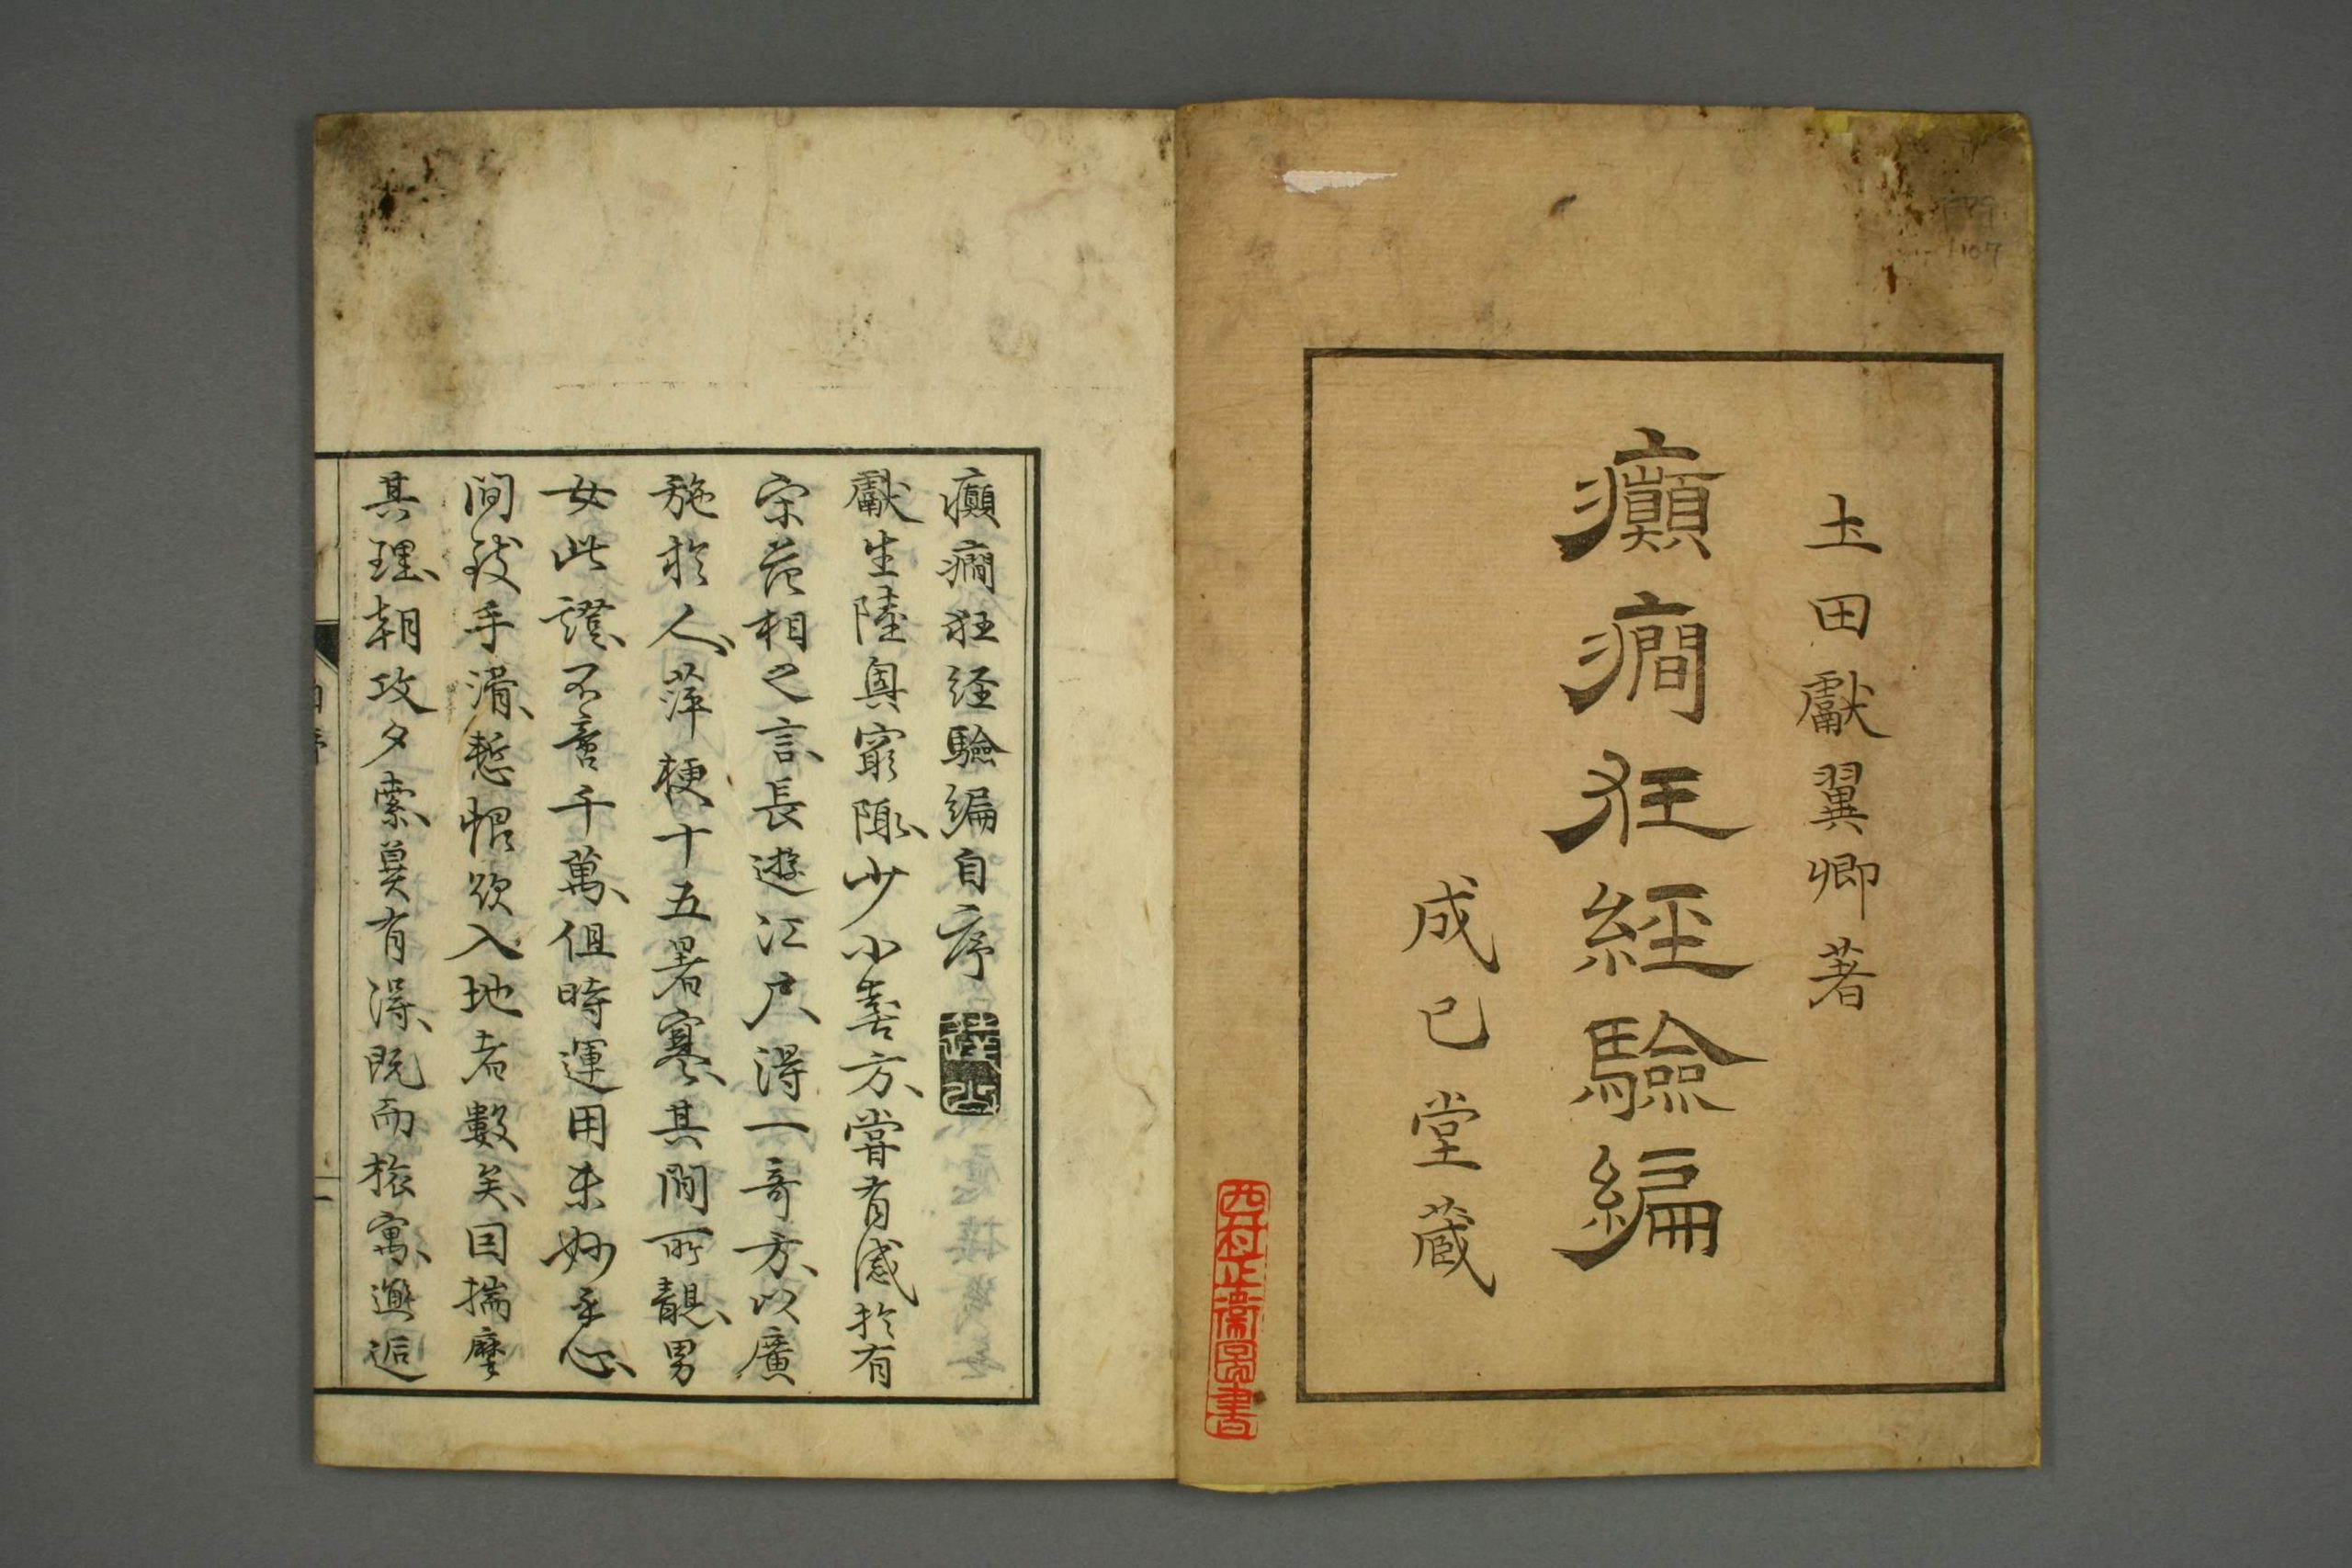 土田獻翼卿著
癲癇狂經驗編
成已堂蔵
癲癇狂経驗編自序
獻生陸奥窮陬少小嗜方嘗有感於有
宋范相之言長遊江戸得一奇方以廣
施於人萍梗十五暑寒其間所覩男
女此證不啻千萬但時運用未妙乎心
間致手滑慙恨欲入地者數矣因揣摩
其理朝攻夕索莫有得既而旅寓邂逅